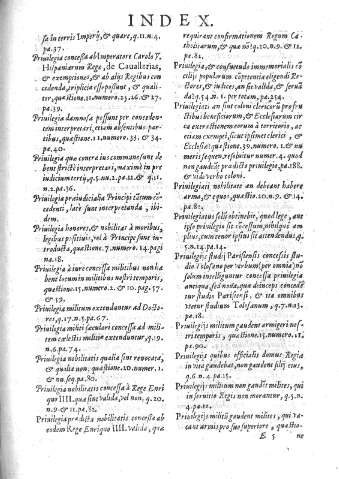 INDEX.
sa in terris Imperij, & quare, q.11.n.4.
pa.37.
Priuilegia concessa ab Imperatore Carolo V.
Hispaniarum Rege, de Cauallerias,
& exemptiones, & ab alijs Regibus concedenda,
& qualiter,
quæstione.10.numero.25.26.& 27.
pa.39.
Priuilegia damnosa possunt per concedentem
interpretari, etiam absentibus partibus,
quæstione.11.numero.33.& 34.
pa.40.
Priuilegia quæ contra ius commune sunt de
benefficio interpretari, maximè in præiudicium
tertij, q.5.nu.2.pa.12.& q.11.
n.2.pa.36.
Priuilegia præiudicialia Principi
concedenti, latè sunt interpretanda, ibidem.
Priuilegia honores, & nobilitas à moribus,
legibus positiuis, vel à Principe sunt introducta,
quæstione.7.numero.14.pagina.18.
Priuilegia à iure concessa militibus non habent
locum in militibus nostri temporis,
quæstione.15.numero.1.& 10.pag.57.
& 59.
Priuilegia militum extenduntur ad Doctores,
q.17.n.5.pa.67.
Priuilegia militi sæculari concessa ad militem
cælestis militiæ extenduntur, q.19.
n.6.pa.74.
Priuilegia nobilitatis qualia sint reuocata,
& qualia non, quæstione.20.numer.1.
& in seq.pa.80.
Priuilegia nobilitatis concessa à Rege Enrique
IIII. quæ sint valida, vel non, q.20.
n.9.& 11.pa.82.
Priuilegia prædicta nobilitatis concessa ab
eodem Rege Enriquo IIII. valida, quæ
requirant confirmationem Regum Catholicorum,
& quæ nõ? q.20.n.9.& 12.
pa.82.
Priuilegio, & consuetudo immemoriali
populorum competentia eligendi Rectores,
& iudices, an sit valida, & seruãda?
q.54.n.1. per totam, pa.254.
Priuilegiati an sint eodem clericorũ profructibus
beneficiorum, & Ecclesiarum circa
extractionem eorum à territorio, ac
etiam exempti, sicut ipsimet clerici, &
Ecclesia? quæstione.39.numero.1.& numeris
sequen. resoluitur numer.4. quod
non gaudent prædicto priuilegio, pa.188.
& vide verbo coloni.
Priuilegiati nobilitate an debeant habere
arma, & equos, quæstio.20.n.9.14.&
pa.82.
Priuilegiatus
ipso priuilegio sit cõcessum, nihilque amplius,
cum tenor ipsius sit attendendus, q.
5.n.14.pa.14.
Priuilegijs studij Parisiensis concessis studio
Tolosano per verbum (per omnia)
solùm intelliguntur concessa priuilegia
antiqua, sed non ea, quæ deinceps conceduntur
studio Parisiensi, & ita omnibus
vtetur studium Tolosanum, q.7.nu.3.
pa.18.
Priuilegijs militum gaudent armigeri nostri
temporis, quæstione.15.numero.11.
pa.90.
Priuilegijs quibus officialis domus Regiæ
in vita gaudebat, non gaudent filij eius,
q.6.n.4.pa.15.
Priuilegijs militum non gaudẽt milites, qui
in seruitio Regis non morantur, q.5.n.
4.pa.12.
Priuilegijs militũ gaudent milites, qui vacant
armis pro suo superiore, quæstio-
E 5 ne